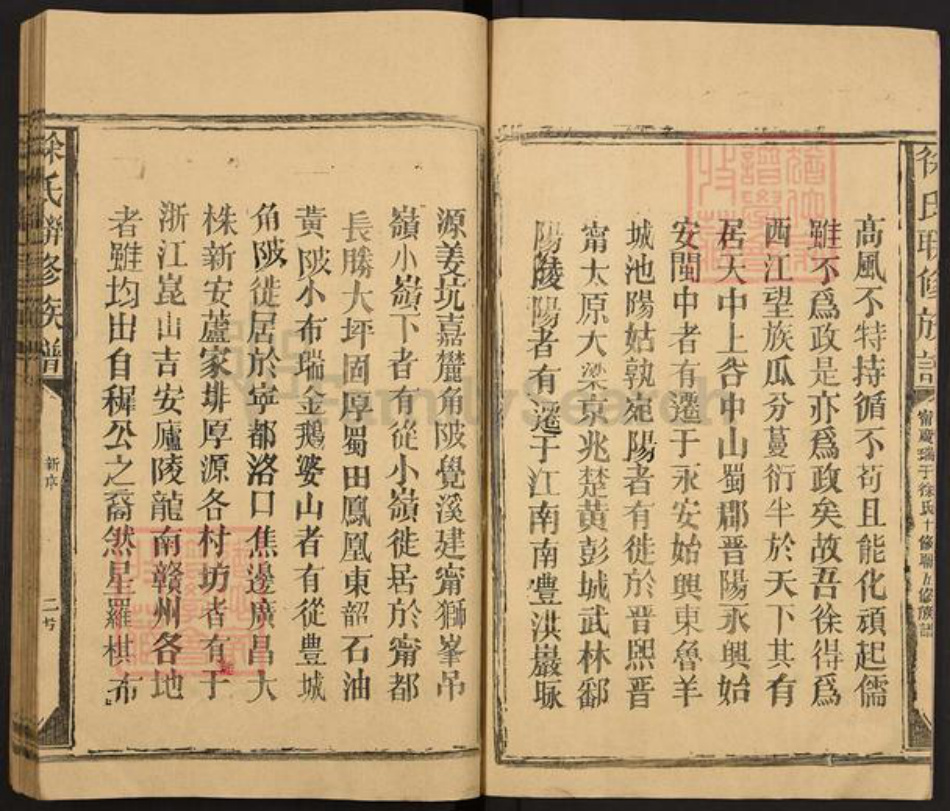 徐氏聯修族譜
寗慶瑞于徐氏十修聯五修族譜
高風不特持循不苟且能化頑起懦
雖不爲政是亦爲政矣故吾徐得爲
西江望族瓜分蔓衍半於天下其有
居大中上谷中山蜀郡晉陽永興始
安閩中者有遷于永安始興東魯羊
城池陽姑孰宛陽者有徙於晉熙晉
甯太原大梁京兆楚黃彭城武林鄱
陽陵陽者有遷于江南南豊洪巖琢
源姜坑嘉麓角陂覺溪建甯獅峯吊
嶺小嶺下者有從小嶺徙居於甯都
長勝大坪固厚蜀田鳳凰東韶石油
黃陂小布瑞金鵝婆山者有從豊城
角陂徙居於寧都洛口焦邊廣昌大
株新安蘆家排厚源各村坊者有于
浙江崑山吉安廬陵龍南贛州各地
者雖均出自穉公之裔然星羅棋布
徐氏聯修族譜
新序
FamilySearch